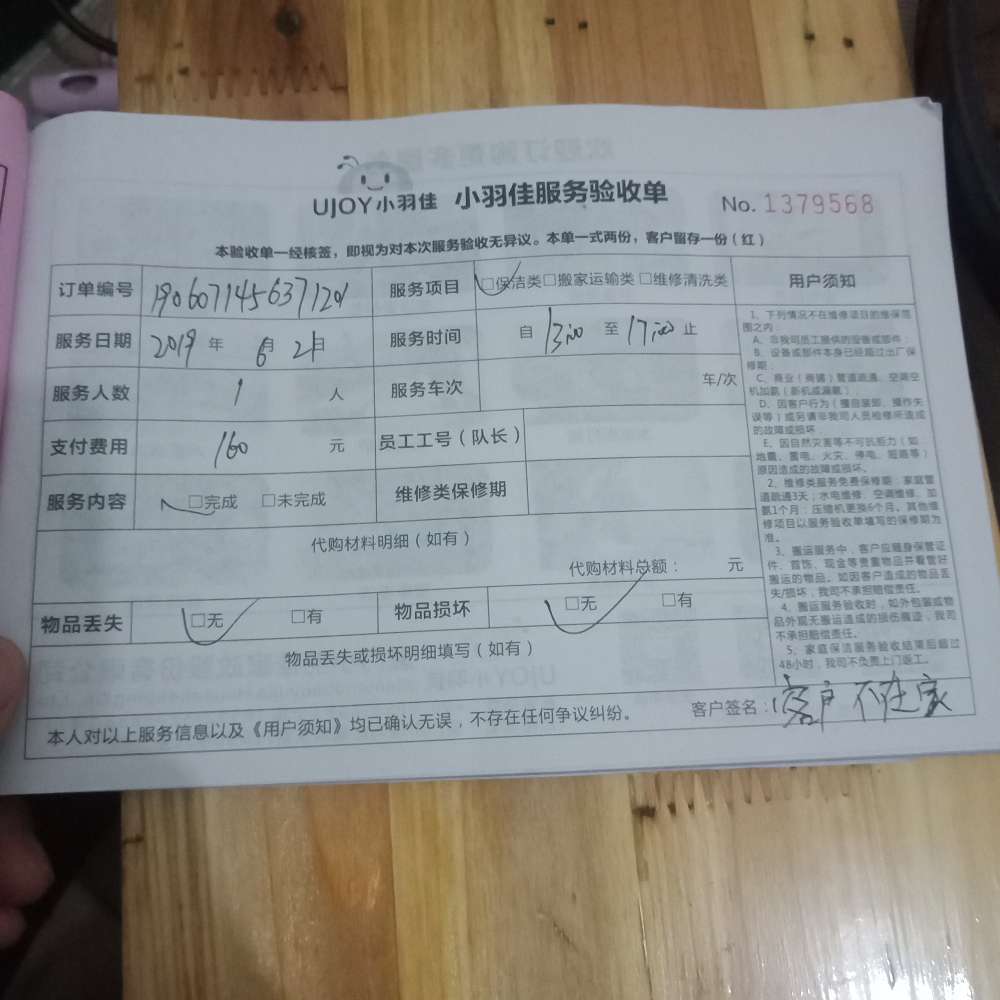 UJOY小羽佳 小羽佳服务验收单 No. 1379568
本验收单一经核签，即视为对本次服务验收无异议。本单一式两份，客户留存一份（红）
订单编号 服务项目 □保洁类□搬家运输类 □维修清洗类 用户须知
服务日期 2019 年 6月 服务时间 自 13:00 至 17:00 止
服务人数 1 人 服务车次 车/次
支付费用 160 元 员工工号（队长）
服务内容 □完成 □未完成 维修类保修期
代购材料明细（如有）
代购材料总额： 元
物品丢失 □无 □有 物品损坏 □无 □有
物品丢失或损坏明细填写（如有）
本人对以上服务信息以及《用户须知》均已确认无误，不存在任何争议纠纷。 客户签名：客户不在家
1、下列情况不在维修项目的维保范
围之内：
A、非我司员工提供的设备或部件；
B、设备或部件本身已经超过出厂保
修期；
C、商业（商铺）管道疏通、空调空
机加氨（新机或漏氨）；
D、因客户行为（擅自装卸、操作失
误等）或另请非我司人员检修所造成
的故障或损坏；
E、因自然灾害等不可抗拒力（如
地震、雷电、火灾、停电、短路等）
原因造成的故障或损坏。
2、维修类服务免费保修期：家庭管
道疏通3天；水电维修、空调维修、加
氨1个月；压缩机更换6个月。其他维
修项目以服务验收单填写的保修期为
准。
3、搬运服务中，客户应随身保管证
件、首饰、现金等贵重物品并看管好
搬运的物品。如因客户造成的物品丢
失/损坏，我司不承担赔偿责任。
4、搬运服务验收时，如外包装或物
品外观无搬运造成的损伤痕迹，我司
不承担赔偿责任。
5、家庭保洁服务验收结束后超过
48小时，我司不负责上门返工。